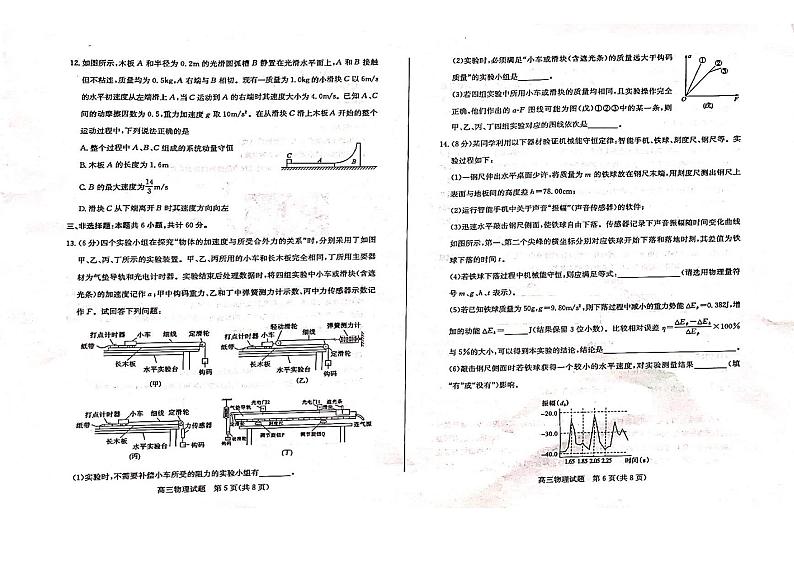 12.如图所示,木板 A 和半径为 0.2m 的光滑圆弧槽 B 静置在光滑水平面上,A 和 B 接触
但不粘连,质量均为 0.5kg,A 右端与 B 相切。现有一质量为 1.0kg 的小滑块 C 以 6m/s
的水平初速度从左端滑上 A,当 C 运动到 A 的右端时其速度大小为 4.0m/s。已知 A、C
间的动摩擦因数为 0.5,重力加速度 g 取 10m/s²。在从滑块 C 滑上木板 A 开始的整个
运动过程中,下列说法正确的是
A. 整个过程中 A、B、C 组成的系统动量守恒
B. 木板 A 的长度为 1.6m
C. B 的最大速度为 14/3 m/s
D. 滑块 C 从下端离开 B 时其速度方向向左
C A B
三、非选择题:本题共 6 小题,共计 60 分。
13.(6 分)四个实验小组在探究“物体的加速度与所受合外力的关系”时,分别采用了如图
甲、乙、丙、丁所示的实验装置。甲、乙、丙所用的小车和长木板完全相同,丁所用主要器
材为气垫导轨和光电计时器。实验结束后处理数据时,将四组实验中小车或滑块(含遮
光条)的加速度记作 a;甲中钩码重力、乙和丁中弹簧测力计示数、丙中力传感器示数记
作 F。试回答下列问题:
打点计时器 小车 细线 定滑轮
纸带
长木板
水平实验台
钩码
(甲)
轻动滑轮 弹簧测力计
打点计时器 小车 细线
纸带
定滑轮
长木板
水平实验台
钩码
(乙)
打点计时器 小车 细线 定滑轮
纸带
力传感器
长木板
水平实验台
钩码
(丙)
气垫导轨 光电门2 光电门1 遮光条
滑块
定滑轮
连气源
调节旋钮P 调节旋钮Q
(丁)
(1)实验时,不需要补偿小车所受的阻力的实验小组有________。
高三物理试题 第 5 页(共 8 页)
(2)实验时,必须满足“小车或滑块(含遮光条)的质量远大于钩码
质量”的实验小组是________。
(3)若四组实验中所用小车或滑块的质量均相同,且实验操作完全
正确,他们作出的 a-F 图线可能为图(戊)①②③中的某一条,则
甲、乙、丙、丁四组实验对应的图线依次是________。
a
①
②
③
O F
(戊)
14.(8 分)某同学利用以下器材验证机械能守恒定律:智能手机、铁球、刻度尺、钢尺等。实
验过程如下:
(1)一钢尺伸出水平桌面少许,将质量为 m 的铁球放在钢尺末端,用刻度尺测出钢尺上
表面与地板间的高度差 h=78.00cm;
(2)运行智能手机中关于声音“振幅”(声音传感器)的软件;
(3)迅速水平敲击钢尺侧面,使铁球自由下落。传感器记录下声音振幅随时间变化曲线
如图所示,第一、第二个尖峰的横坐标分别对应铁球开始下落和落地时刻,其差值为铁
球下落的时间 t。
(4)若铁球下落过程中机械能守恒,则应满足等式:____________(请选用物理量符
号 m、g、h、t 表示)。
(5)若已知铁球质量为 50g,g=9.80m/s²,则下落过程中减小的重力势能 △Eₚ=0.382J,增
加的动能 △Eₖ=______J(结果保留 3 位小数)。比较相对误差 η=(△Eₚ−△Eₖ)/△Eₚ×100%
与 5%的大小,可以得到本实验的结论,结论是____________________。
(6)敲击钢尺侧面时若铁球获得一个较小的水平速度,对实验测量结果________(填
“有”或“没有”)影响。
振幅(dₐ)
-20.0
-30.0
-40.0
1.65 1.85 2.05 2.25 时间(s)
高三物理试题 第 6 页(共 8 页)